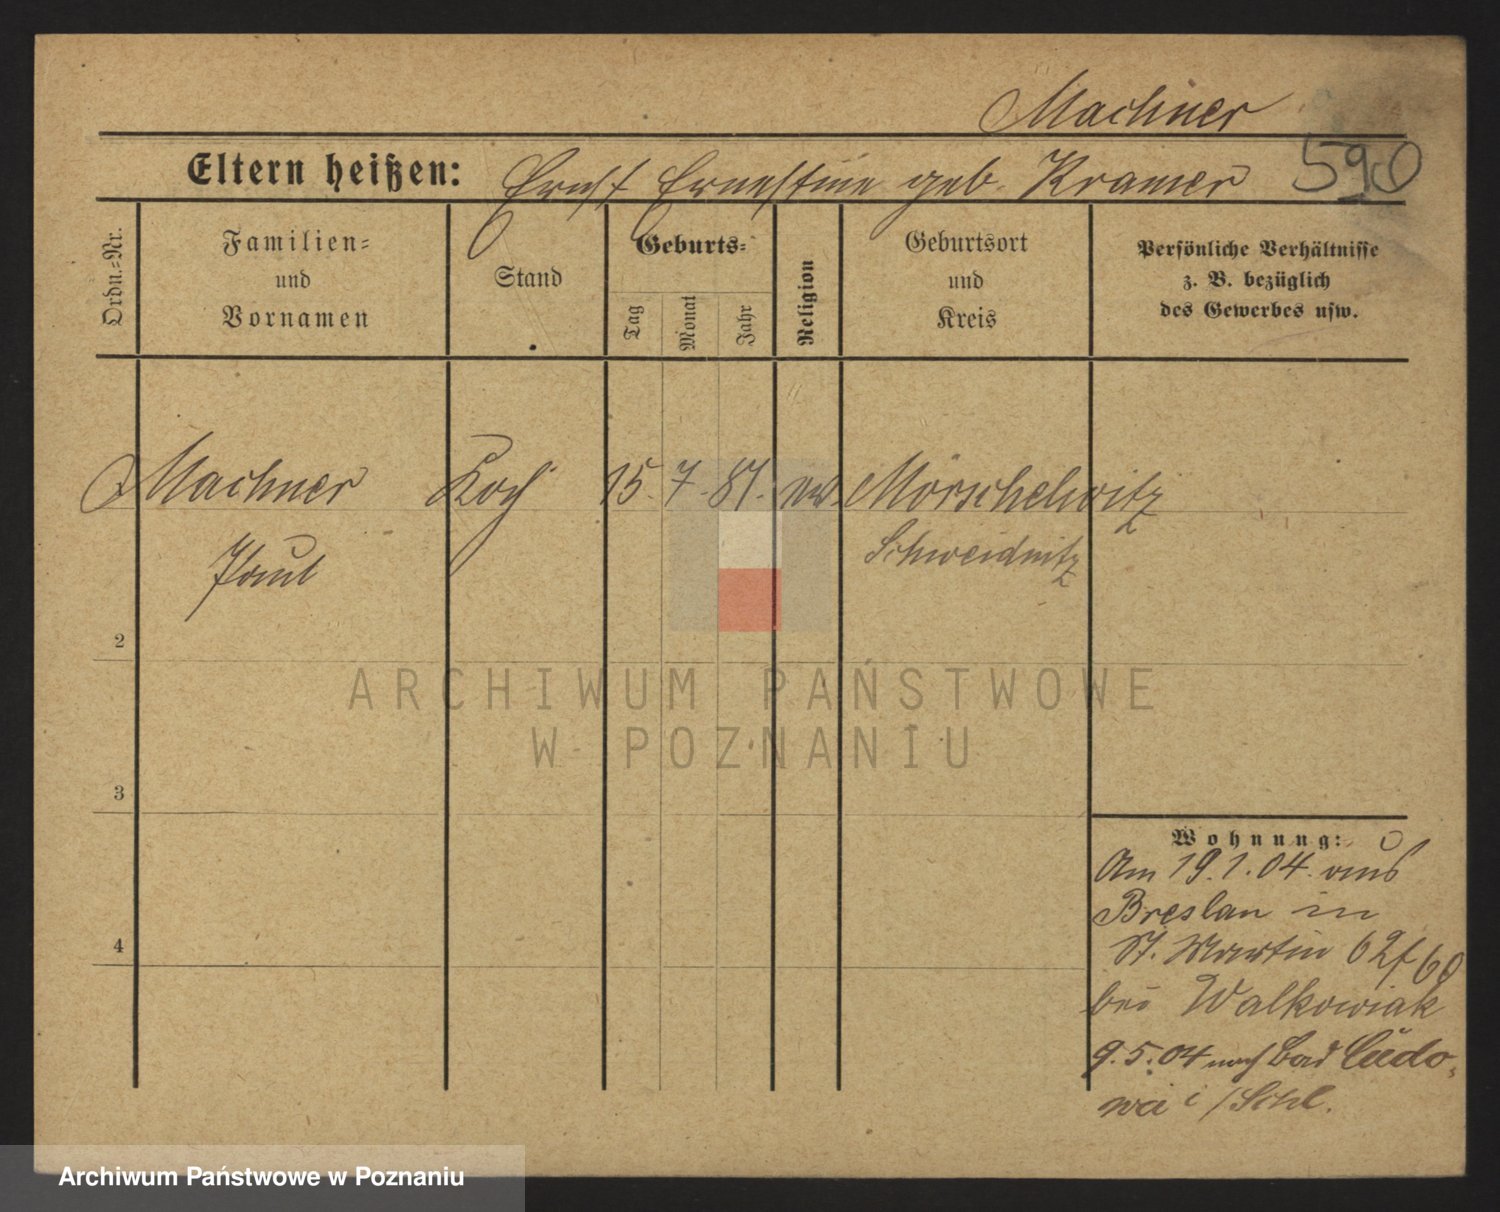 Machner
Eltern heißen: Ernst Ernestine geb. Kramer 590
Ordn.=Nr.
Familien=
und
Vornamen
Stand
Geburts=
Tag
Monat
Jahr
Religion
Geburtsort
und
Kreis
Persönliche Verhältnisse
z. B. bezüglich
des Gewerbes usw.
Machner Koch 15. 7. 87. ev. Mörschelwitz
Paul Schweidnitz
2
3
4
Wohnung:
Am 19.1.04. aus
Breslau in
St. Martin 62 f 60
bei Walkowiak
9.5.04 nach Bad Cudo-
wa i /Schl.
ARCHIWUM PAŃSTWOWE
W POZNANIU
Archiwum Państwowe w Poznaniu